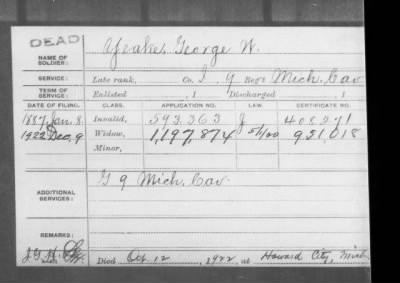 DEAD
NAME OF SOLDIER: Yeakes, George W.
SERVICE: Late rank, Co. I, 9 Reg't Mich. Cav
TERM OF SERVICE: Enlisted , 1 Discharged , 1
DATE OF FILING. CLASS. APPLICATION NO. LAW. CERTIFICATE NO.
1887, Jan. 8 Invalid, 593,363 J 408,271
1922 Dec, 9 Widow, 1,197,874 951,018
Minor,
ADDITIONAL SERVICES: G 9 Mich. Cav.
REMARKS:
Died Oct 12, 1922 at Howard City, Mich